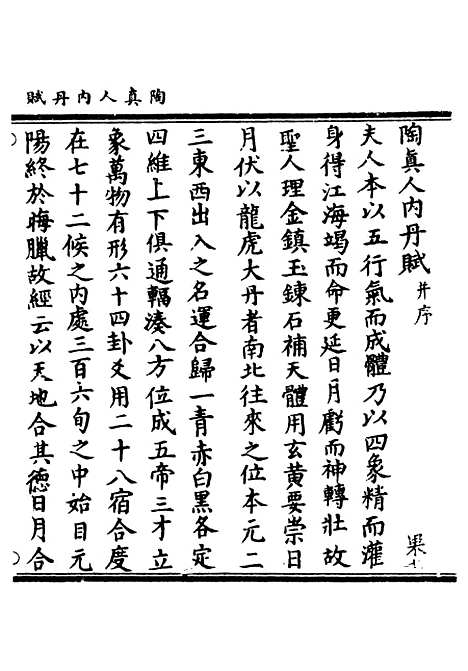 陶真人內丹賦
陶真人內丹賦 并序
夫人本以五行氣而成體乃以四象精而灌
身得江海竭而命更延日月虧而神轉壯故
聖人理金鎮玉鍊石補天體用玄黃要崇日
月伏以龍虎大丹者南北往來之位本元二
三東西出入之名運合歸一青赤白黑各定
四維上下俱通輻湊八方位成五帝三才立
象萬物有形六十四卦爻用二十八宿合度
在七十二候之內處三百六旬之中始目元
陽終於晦臘故經云以天地合其德日月合